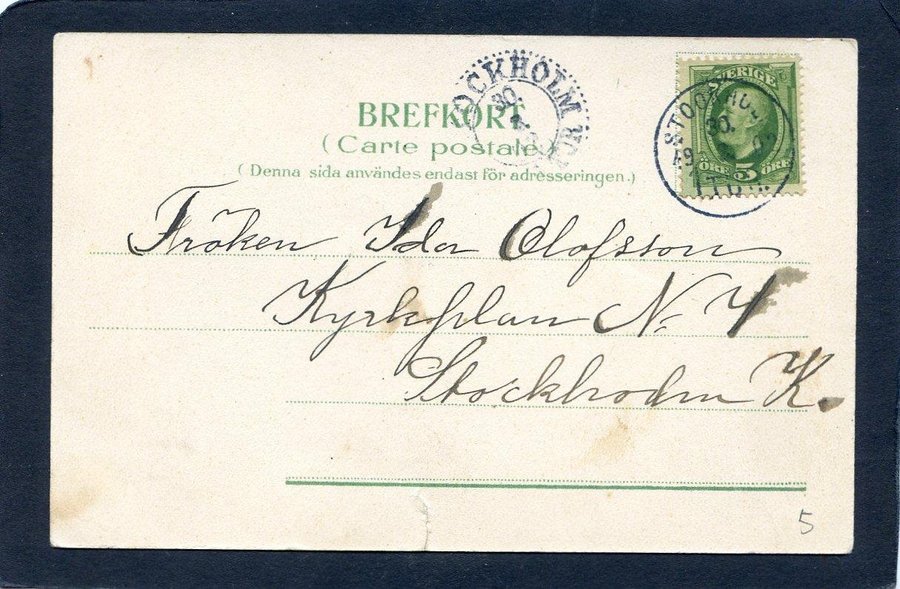 BREFKORT
(Carte postale)
(Denna sida användes endast för adresseringen.)
STOCKHOLM
30.
SVERIGE
ÖRE 5 ÖRE
STOCKHOLM
30.
Fröken Ida Olofsson
Kyrkplan N: 4
Stockholm K.
5